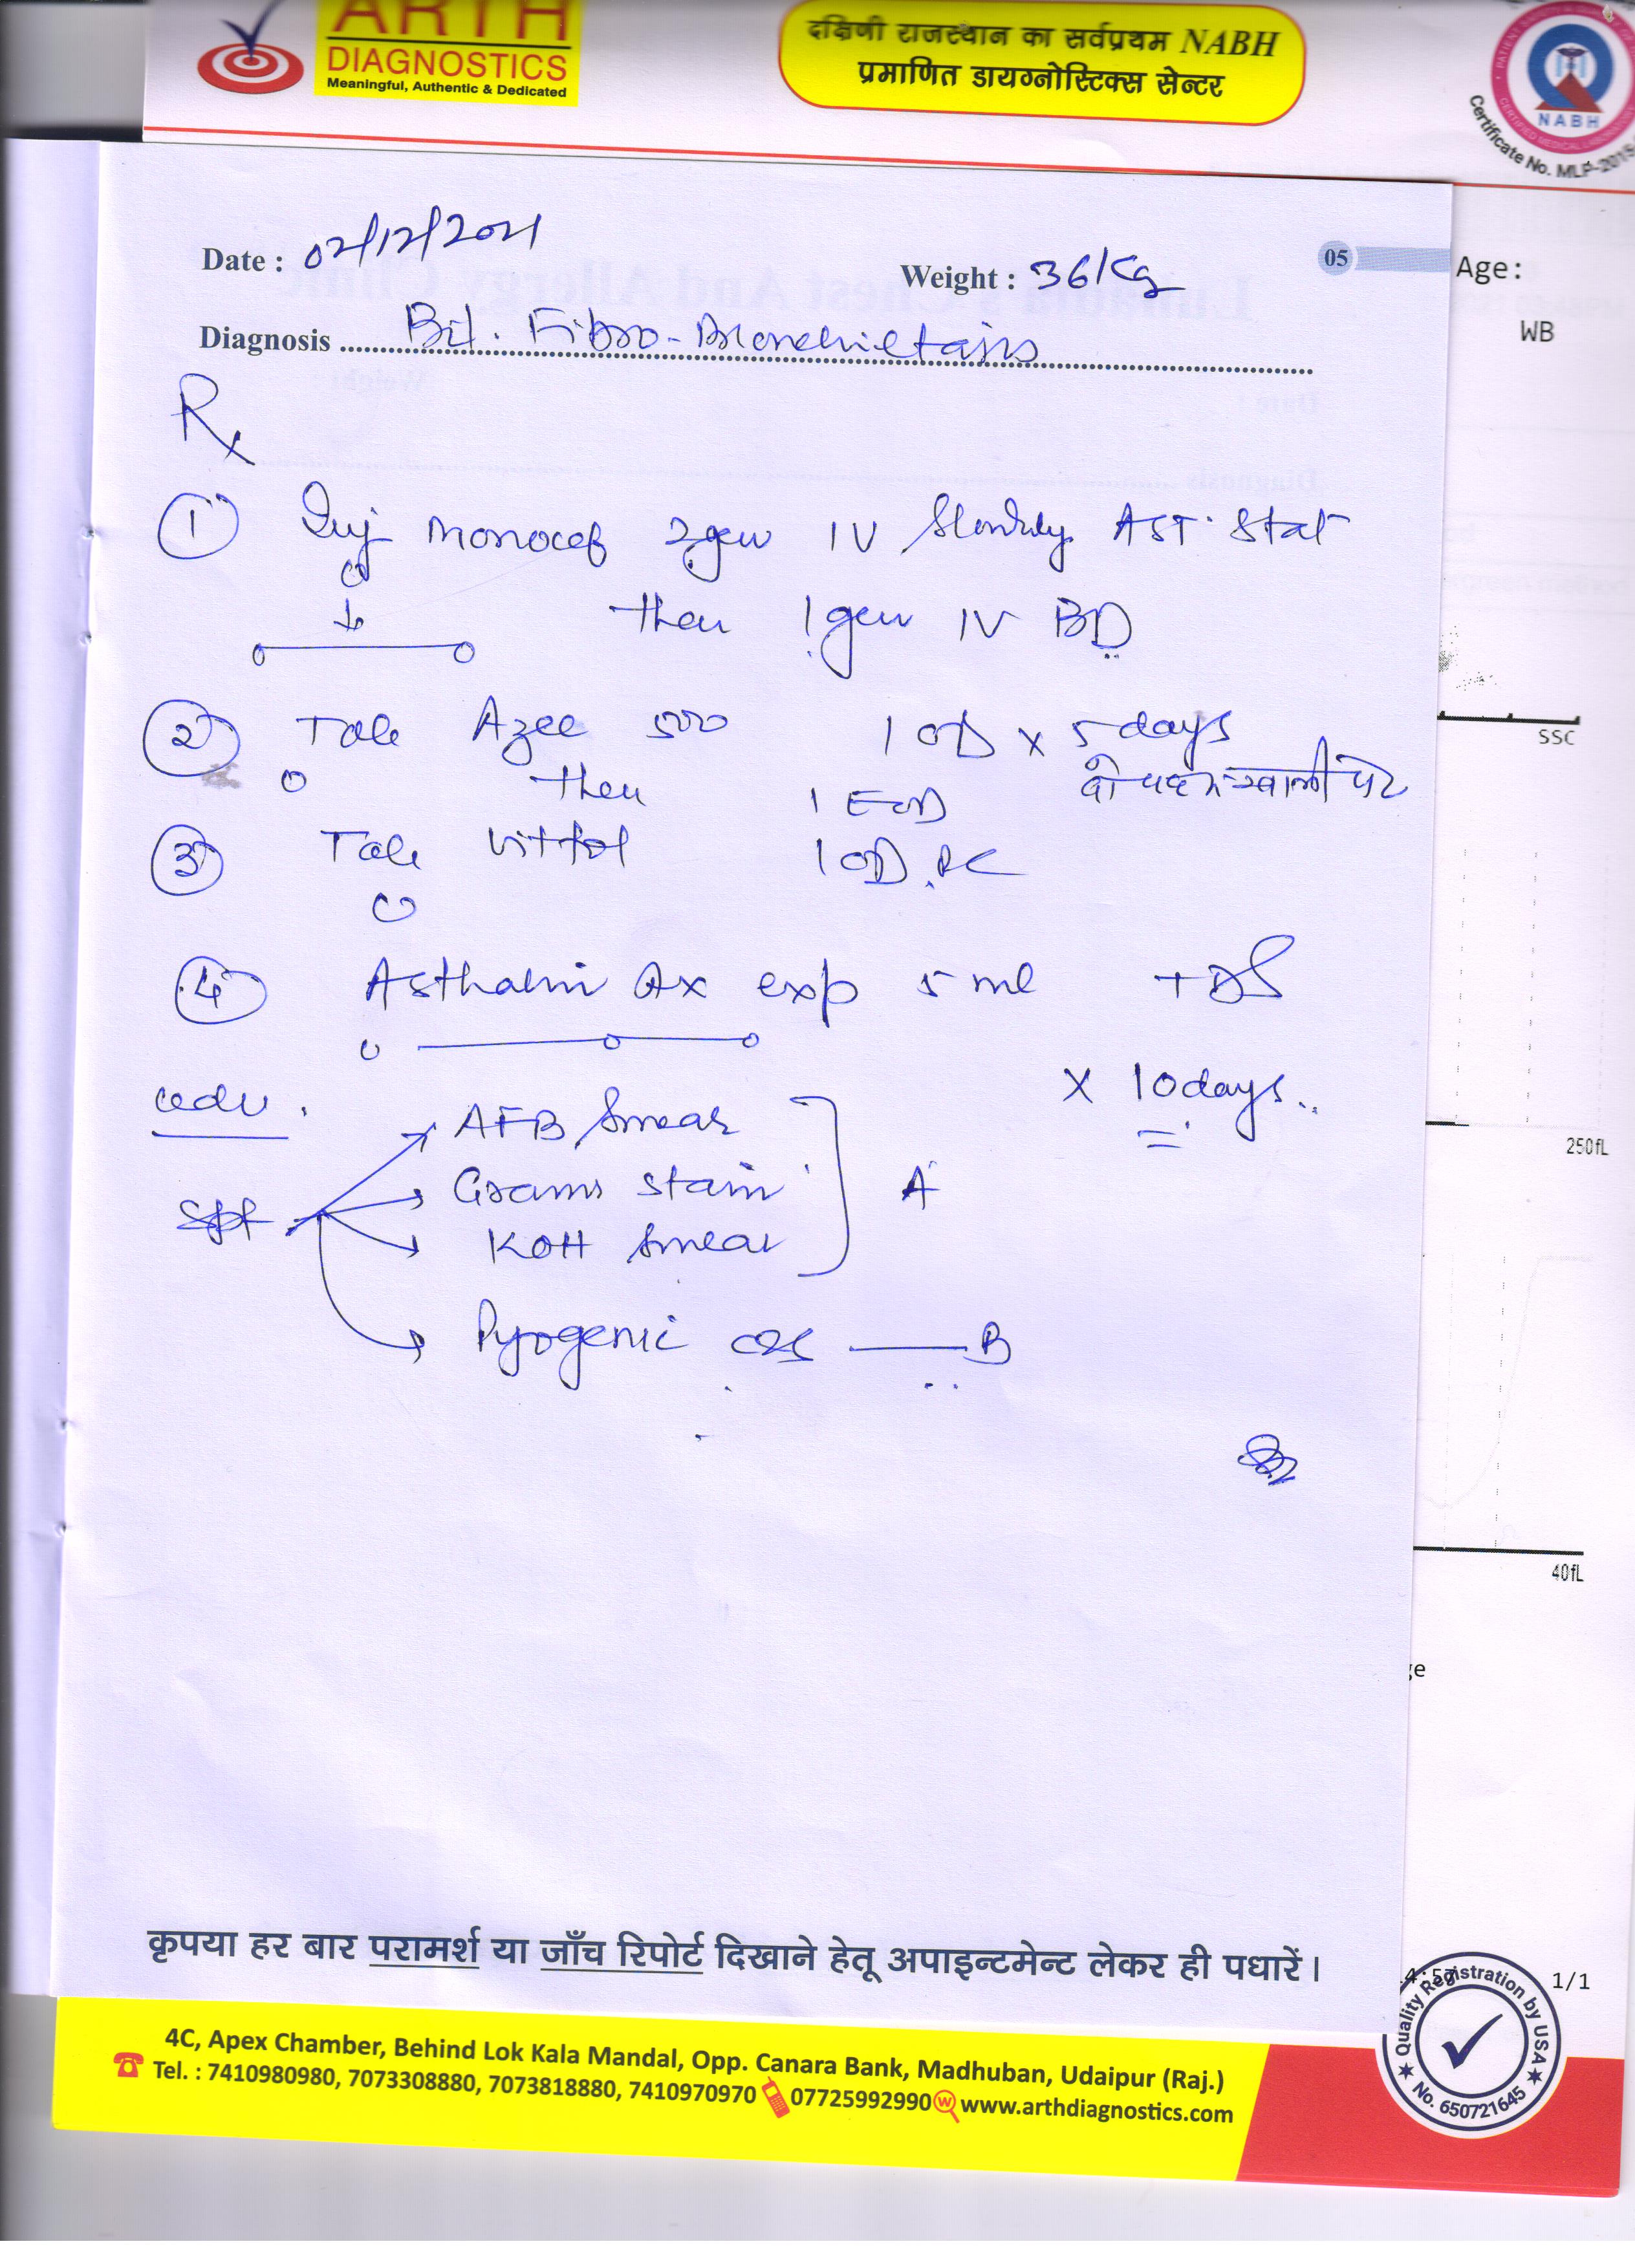 ARTH
DIAGNOSTICS
Meaningful, Authentic & Dedicated
दक्षिणी राजस्थान का सर्वप्रथम NABH
प्रमाणित डायग्नोस्टिक्स सेन्टर
NABH
Certificate No. MLP-2015
Date : 02/12/2021
Weight : 36 kg
05
Age:
WB
Diagnosis Bil. Fibro-Bronchietasis
Rx
① Inj Monocef 2gm IV Slowly AST Stat
then 1gm IV BD
② Tab Azee 500 1 OD x 5 days
then 1 EOD खाली पेट
③ Tab 1 OD
④ Asthalin Ax exp 5 ml TDS
x 10 days
adv.
AFB Smear
Grams stain A
KOH Smear
Pyogenic c/s — B
SSC
250fL
40fL
ge
कृपया हर बार परामर्श या जाँच रिपोर्ट दिखाने हेतू अपाइन्टमेन्ट लेकर ही पधारें।
4:57
1/1
4C, Apex Chamber, Behind Lok Kala Mandal, Opp. Canara Bank, Madhuban, Udaipur (Raj.)
Tel. : 7410980980, 7073308880, 7073818880, 7410970970 07725992990 www.arthdiagnostics.com
Quality Registration by USA
No. 650721645